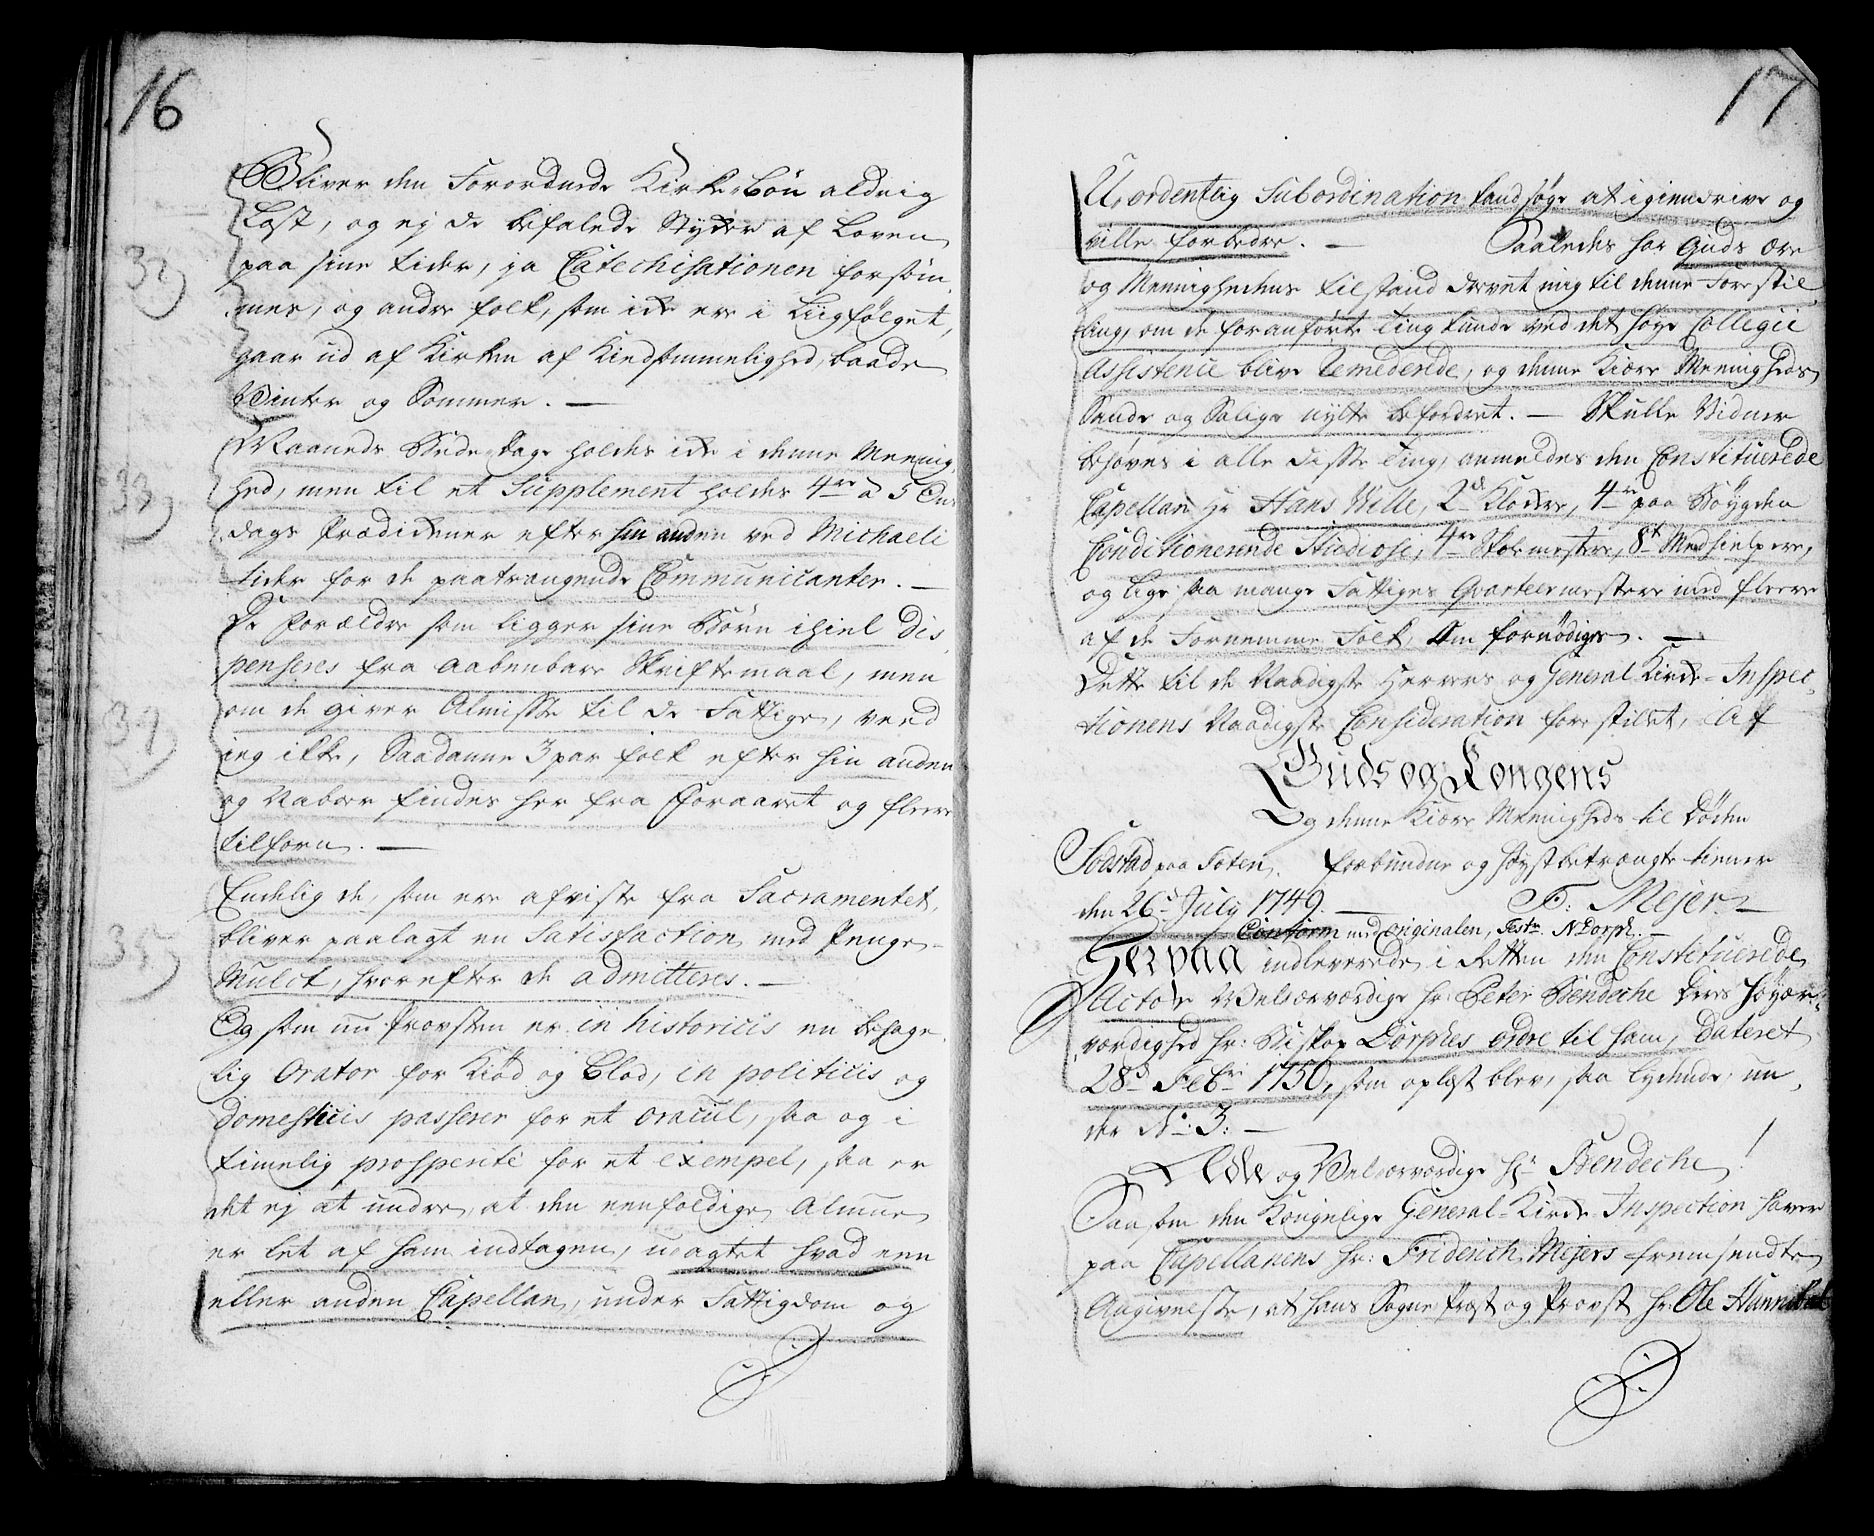 16
Bliver den Forordnede Kirke-Bøn aldrig
Læst, og ej de befalede Stycker af Loven
paa sine tider, ja Catechisationen forsøm,
mes, og andre folk, som icke ere i Liigfølget,
gaar ud af Kirken af Kindsommelighed, baade
Vinter og Sommer. —
32)
Maaneds Bededage holdes icke i denne Meenig,
hed, men til et Supplement holdes 4re a 5 Ons
dags Prædickener efter hin anden ved Michaeli
tider for de paatrængende Communicanter. —
33)
De Forældre som ligger sine Børn ihiel Dis,
penseres fra aabenbare Skriftemaal, men
om de giver Almisse til de Fattige, veed
ieg ikke, Saadanne 3 par folk efter hin anden
og Naboer findes her fra Foraaret og fleere
tilforn. —
34)
Endelig de, som ere afviste fra Sacramentet,
bliver paalagt en Satisfaction med Penge-
Mulct, hvorefter de admitteres. —
35)
Og som nu Provsten er in historicis en behage,
lig Orator for Kiød og Blod, in politicis og
domesticis passerer for et oracul, saa og i
timelig prosperité for et exempel, saa er
det ej at undre, at den eenfoldige Almue
er let af ham indtagen, uagtet hvad een
eller anden Capellan, under Fattigdom og
17
Uordentlig Subordination kand søge at igiendrive og
ville forbedre. — Saaledes har Guds ære
og Meenighedens tilstand drevet mig til denne Forestil,
ling, om de foranførte ting kunde ved det høye Collegii
Assistence blive remederede, og denne Kiære Meenigheds
Sande og Salige nytte befordret. — Skulle Vidner
behøves i alle disse ting, anmeldes den Constituerede
Capellan Hr Hans Wille, 2de Klockere, 4re paa Bøygden
Conditionerende Studiosi, 4re Skolemestere, 8te Medhielpere,
og lige saa mange Fattiges Qvarteermestere med fleere
af de Fornemme Folk, om fornødiges. —
Dette til de Naadigste Herrers og General Kircke-Inspec-
tionens Naadigste Consideration forestillet, Af
Guds og Kongens
Og denne Kiære Meenigheds til Døden
Sodstad paa Toten, forbundne og høystbetrængte tiener
den 26de July 1749. — F: Mejer
Conform med originalen, Test: N Dorph. —
Herpaa indleverede i Retten den Constituerede
Actor Velærværdige Hr: Peter Bendeche Deres Høyær-
værdighed Hr: Biskop Dorphes ordre til ham, Dateret
28de Febri 1750, som oplæst blev, saa lydende, un,
der No: 3: —
Ædle og Velærværdige Hr Bendeche!
Saasom den Kongelige General-Kircke-Inspection haver
paa Capellanens Hr: Friderich Mejers fremsendte
Angivelse, at hans Sogne Præst og Provst Hr: Ole Hannibals